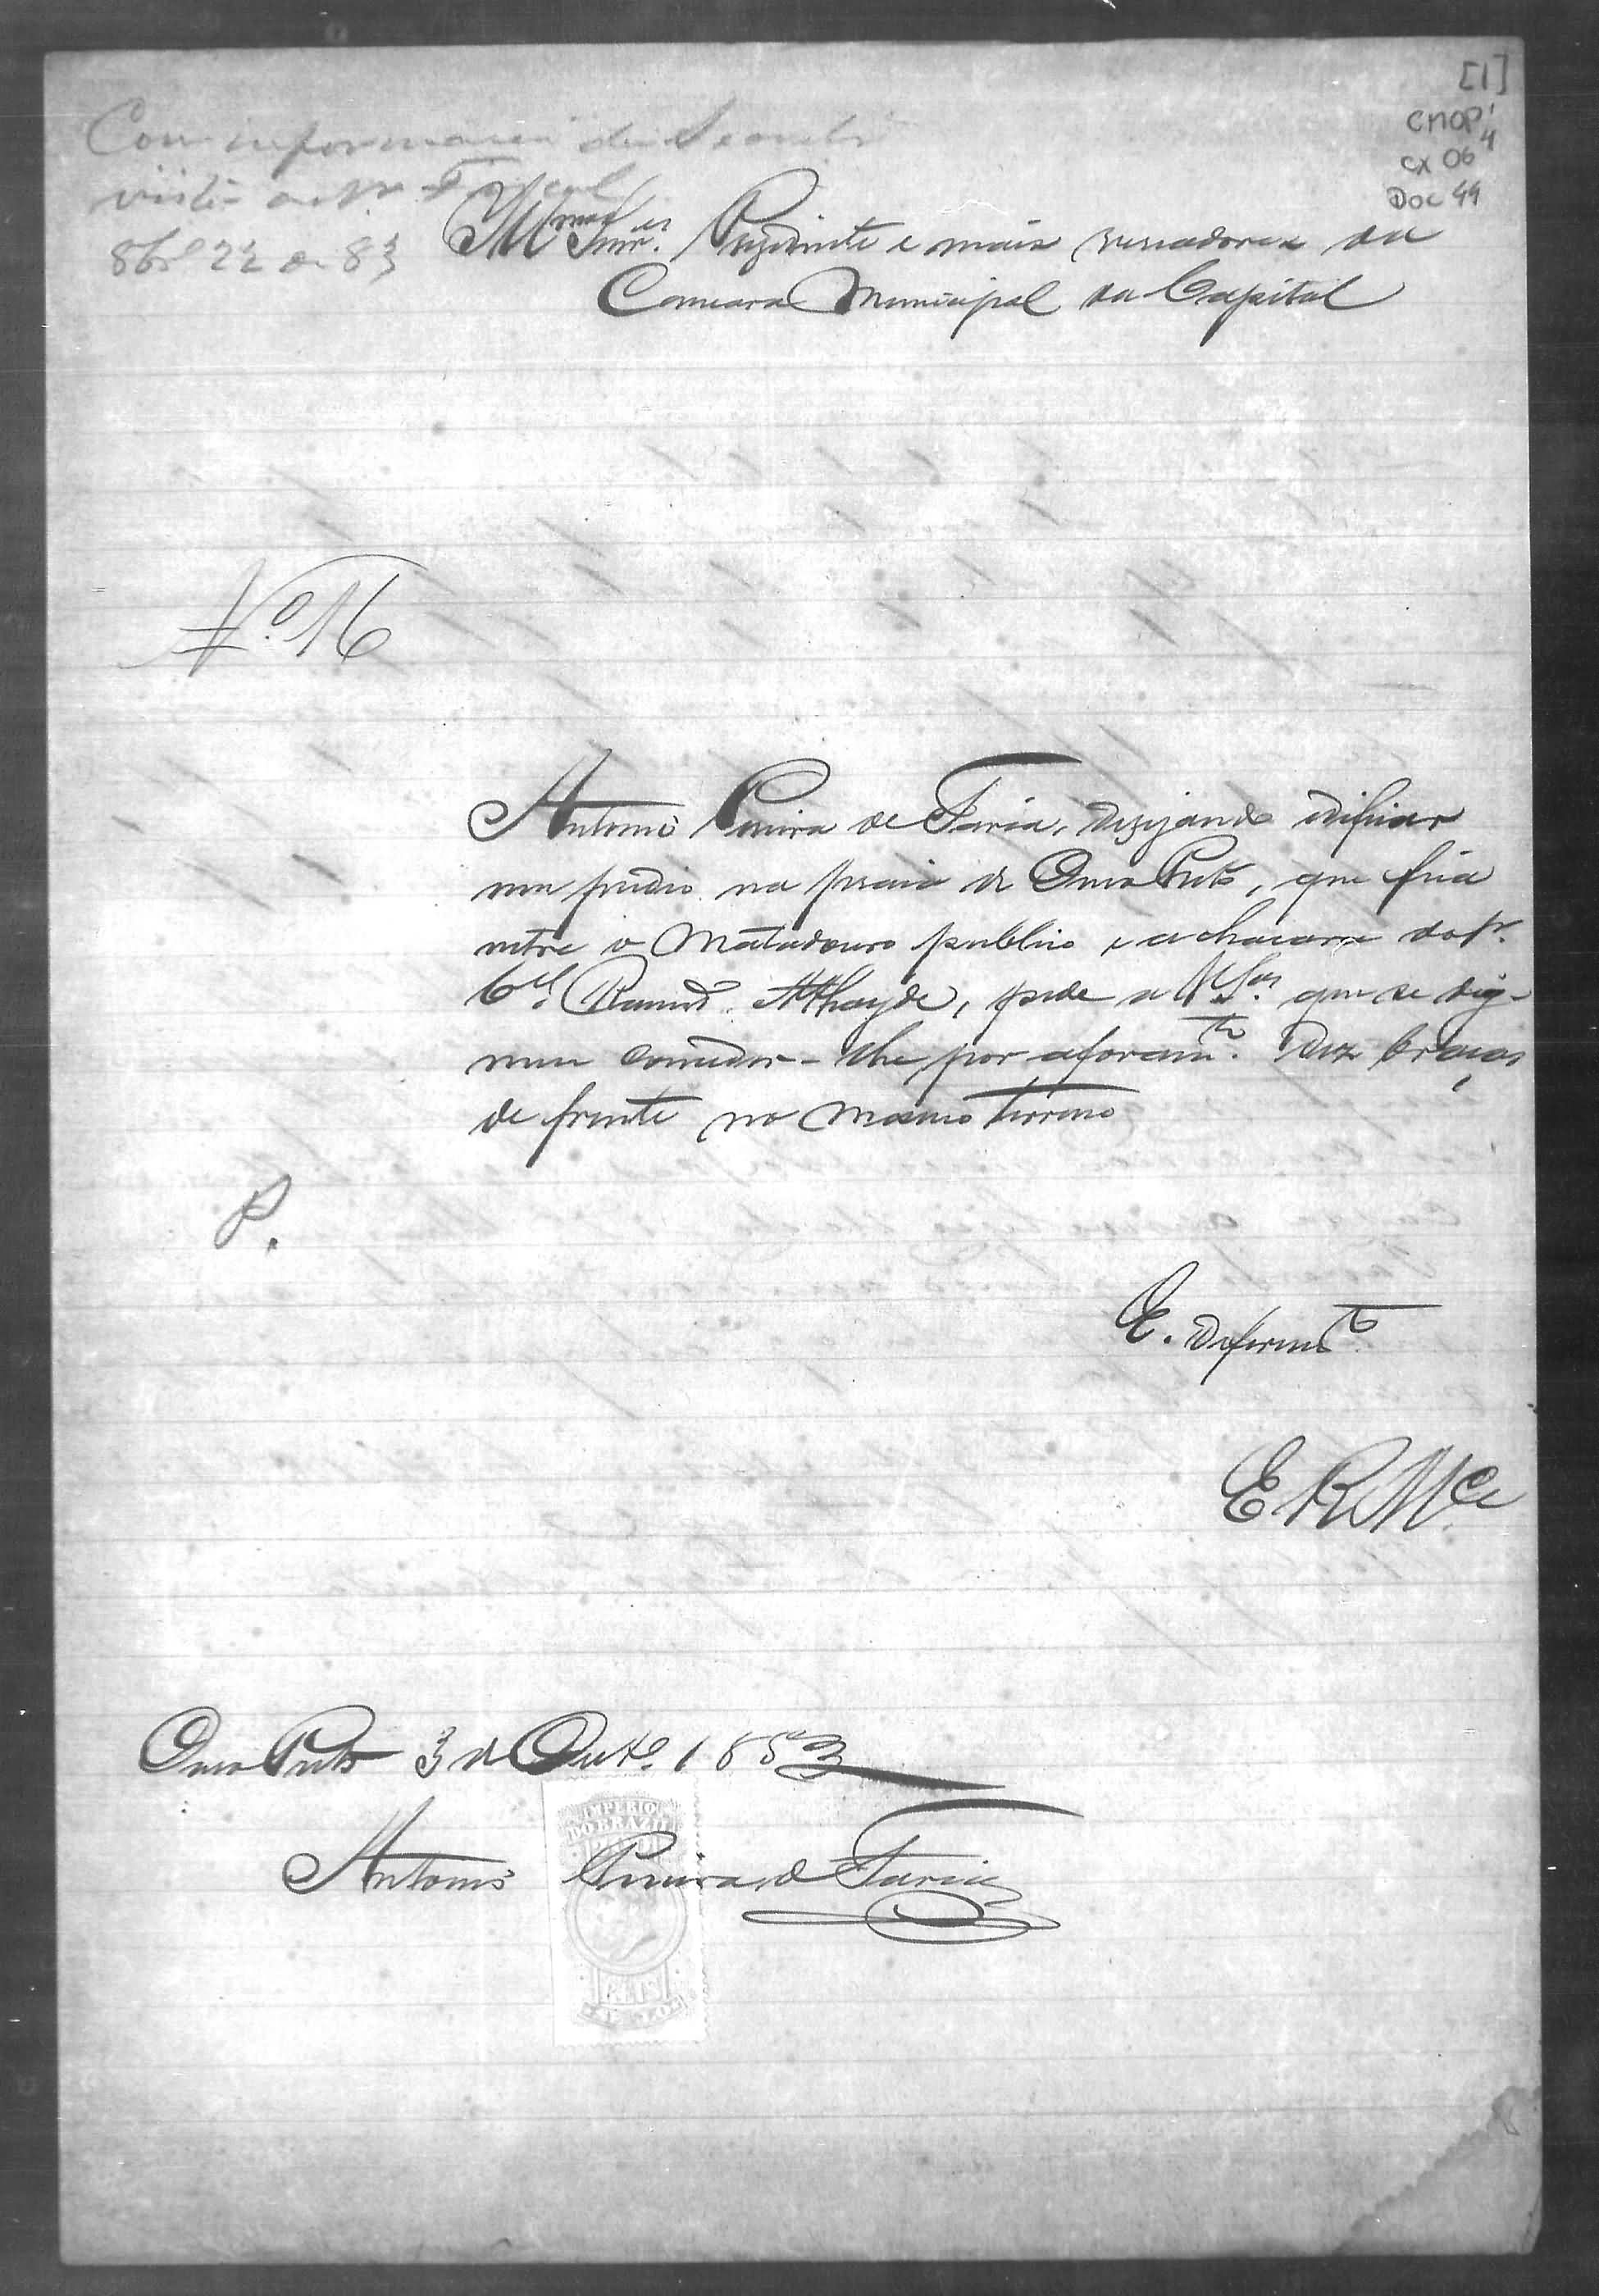 [1]
CMOP
Cx 06
DOC 49
Com informação do
visto ao Sr. Fiscal
8br.º 22 de 83
Illmos Snrs. Prezidente e mais vereadores da
Camara Municipal da Capital
N.º 16
Antonio Pereira de Faria, dezejando edificar
um predio na praia de Ouro Preto, que fica
entre o Matadouro publico e a chacara do Snr.
Cel. Ramos Athayde, pede a VV. Sas. que se dig-
nem conceder-lhe por aforamto. dez braças
de frente no mesmo terreno
P.
E. Deferimto.
E R Mce
Ouro Preto 3 de Outo. 1883
IMPERIO
DO BRAZIL
Antonio Pereira de Faria
REIS